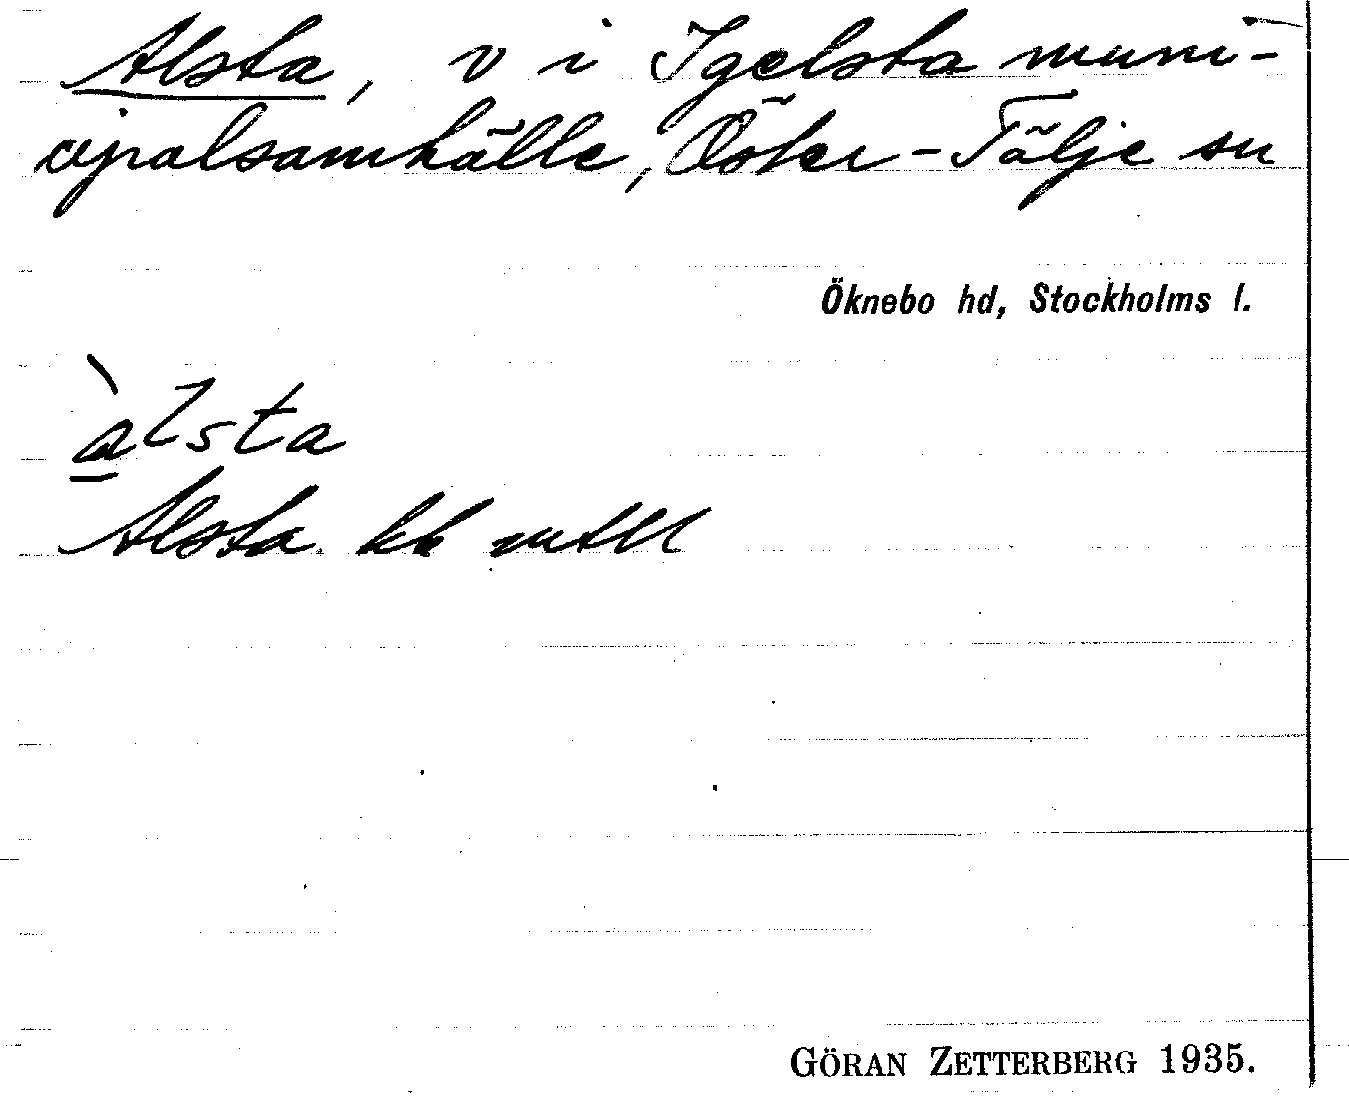 Alsta, v i Igelsta muni-
cipalsamhälle, Öster-Tälje sn
Öknebo hd, Stockholms l.
àlsta
Alsta
GÖRAN ZETTERBERG 1935.